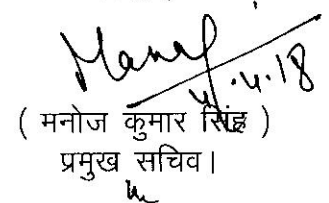 Manoj
4.4.18
( मनोज कुमार सिंह )
प्रमुख सचिव।